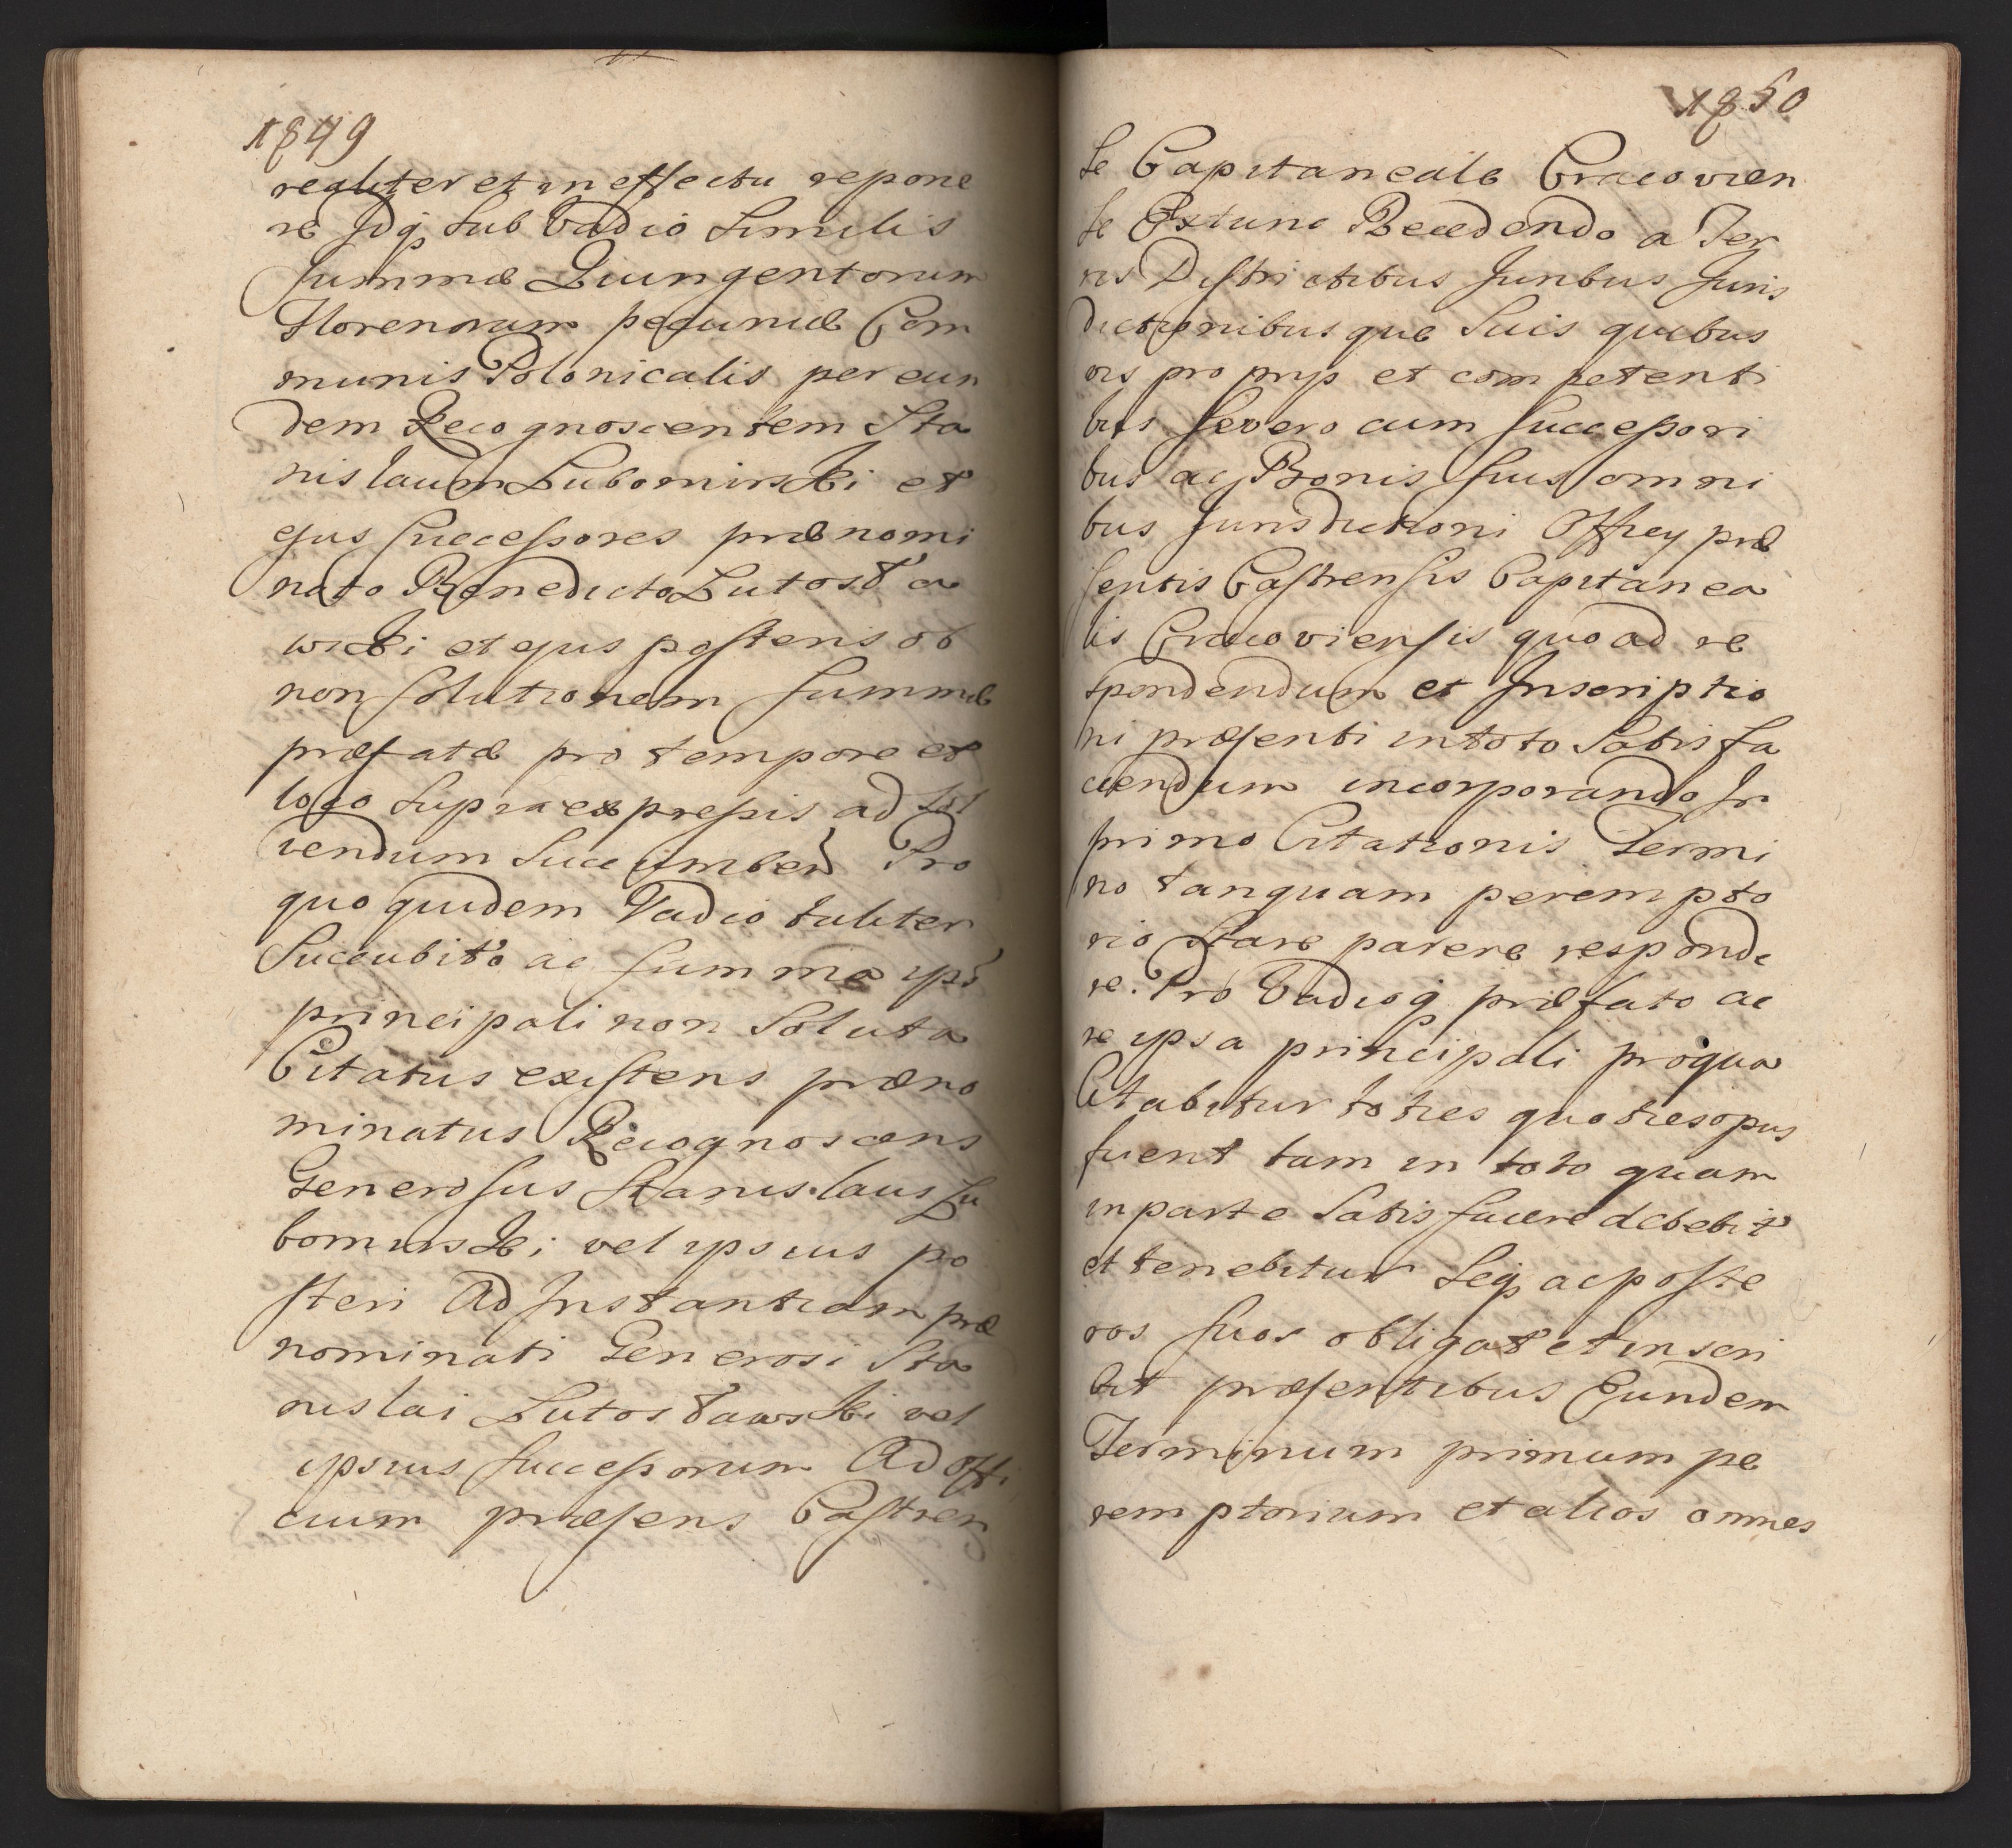 1849
realiter et in effectu repone
re Idq₃ sub Vadio similis
Summæ Quingentorum
Florenorum pecuniæ Com
munis Polonicalis per eun
dem Recognoscentem Sta
nislaum Lubomirski et
ejus Successores præ nomi
nato Benedicto Lutosta
wski et ejus posteris ob
non solutionem summæ
præfatæ pro tempore et
loco supra expressis ad sol
vendum Succumben Pro
quo quidem Vadio taliter
Succubito ac summa ipsa
principali non Soluta
Citatus existens præno
minatus Recognoscens
Generosus Stanislaus Lu
bomirski vel ipsius po
steri Ad Instantiam præ
nominati Generosi Sta
nislai Lutostawski vel
ipsius successorum Ad Offi
cium præsens Castren
1850
se Capitaneale Cracovien
se Extunc Recedendo a Ter
ris Districtibus Juribus Juris
dictionibusque Suis quibus
vis proprijs et competenti
bus Se vero cum successori
bus ac Bonis suis omni
bus Jurisdictioni Officy præ
sentis Castrensis Capitanea
lis Cracoviensis quo ad re
spondendum et Inscriptio
ni præsenti in toto Satisfa
ciendum incorporando In
primo Citationis Termi
no tanquam perempto
rio Stare parere responde
re. Pro Vadioq₃ præfato ac
re ipsa principali pro qua
Citabitur toties quoties opus
fuerit tam in toto quam
in parte Satisfacere debebit
et tenebitur Seq₃ ac poste
ros suos obligat et inscri
bit præsentibus Eundem
Terminum primum pe
remptorium et alios omnes